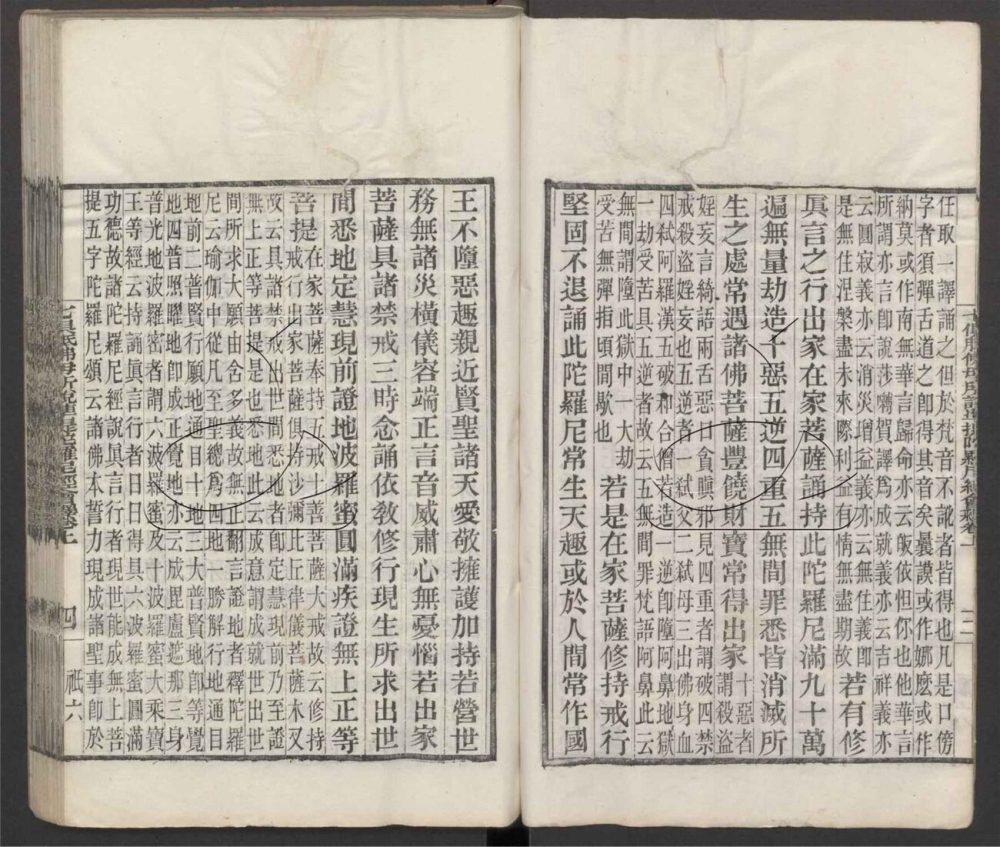 任取一譯誦之但於梵音不訛者皆得也凡是口傍
字者須彈舌道之卽得其音矣曩謨或作娜麽或作
納莫或作南無華言歸命亦云皈依怛你也他華言
所謂亦言卽說莎嚩賀譯爲成就義亦云吉祥義亦
云圓寂義亦云消災增益義亦云無住義卽
是無住涅槃盡未來際利益有情無盡期故 若有修
眞言之行出家在家菩薩誦持此陀羅尼滿九十萬
遍無量劫造十惡五逆四重五無間罪悉皆消滅所
生之處常遇諸佛菩薩豐饒財寶常得出家 十惡者
謂殺盜
婬妄言綺語兩舌惡口貪瞋邪見四重者謂破四禁
戒殺盜婬妄也五逆者一弒父二弒母三出佛身血
四弒阿羅漢五破和合僧若造一逆卽墮阿鼻地獄
一劫受苦具五逆者故云五無間罪梵語阿鼻此云
無間謂墮此獄中一大劫
受苦無彈指頃間歇也 若是在家菩薩修持戒行
堅固不退誦此陀羅尼常生天趣或於人間常作國
王不墮惡趣親近賢聖諸天愛敬擁護加持若營世
務無諸災橫儀容端正言音威肅心無憂惱若出家
菩薩具諸禁戒三時念誦依敎修行現生所求出世
間悉地定慧現前證地波羅蜜圓滿疾證無上正等
菩提 在家菩薩奉持五戒十善菩薩大戒故云修持
戒行出家菩薩俱持沙彌比丘律儀菩薩木叉
故云具諸禁戒也出世間悉地者卽定慧現前乃至證
無上正等菩提是也悉地此云成意謂成就世出世
間所求大願由含多義故無正翻言證地者釋陀羅
尼云瑜伽中從凡至聖總爲四地一勝解行地通目
地前二普賢行願地通目十地三大普賢地卽等覺
地四普照曜地卽成正覺地亦云成毘盧遮那三身
普光地波羅蜜者謂六波羅蜜及十波羅蜜大乘寶
王等經云持誦眞言行者日日得具六波羅蜜圓滿
功德故諸陀羅尼經說眞言行者現世能成無上菩
提五字陀羅尼頌云誦佛本誓力現成誦聖事卽於
七俱胝佛母所說準提陀羅尼經會釋卷上 四 祇六